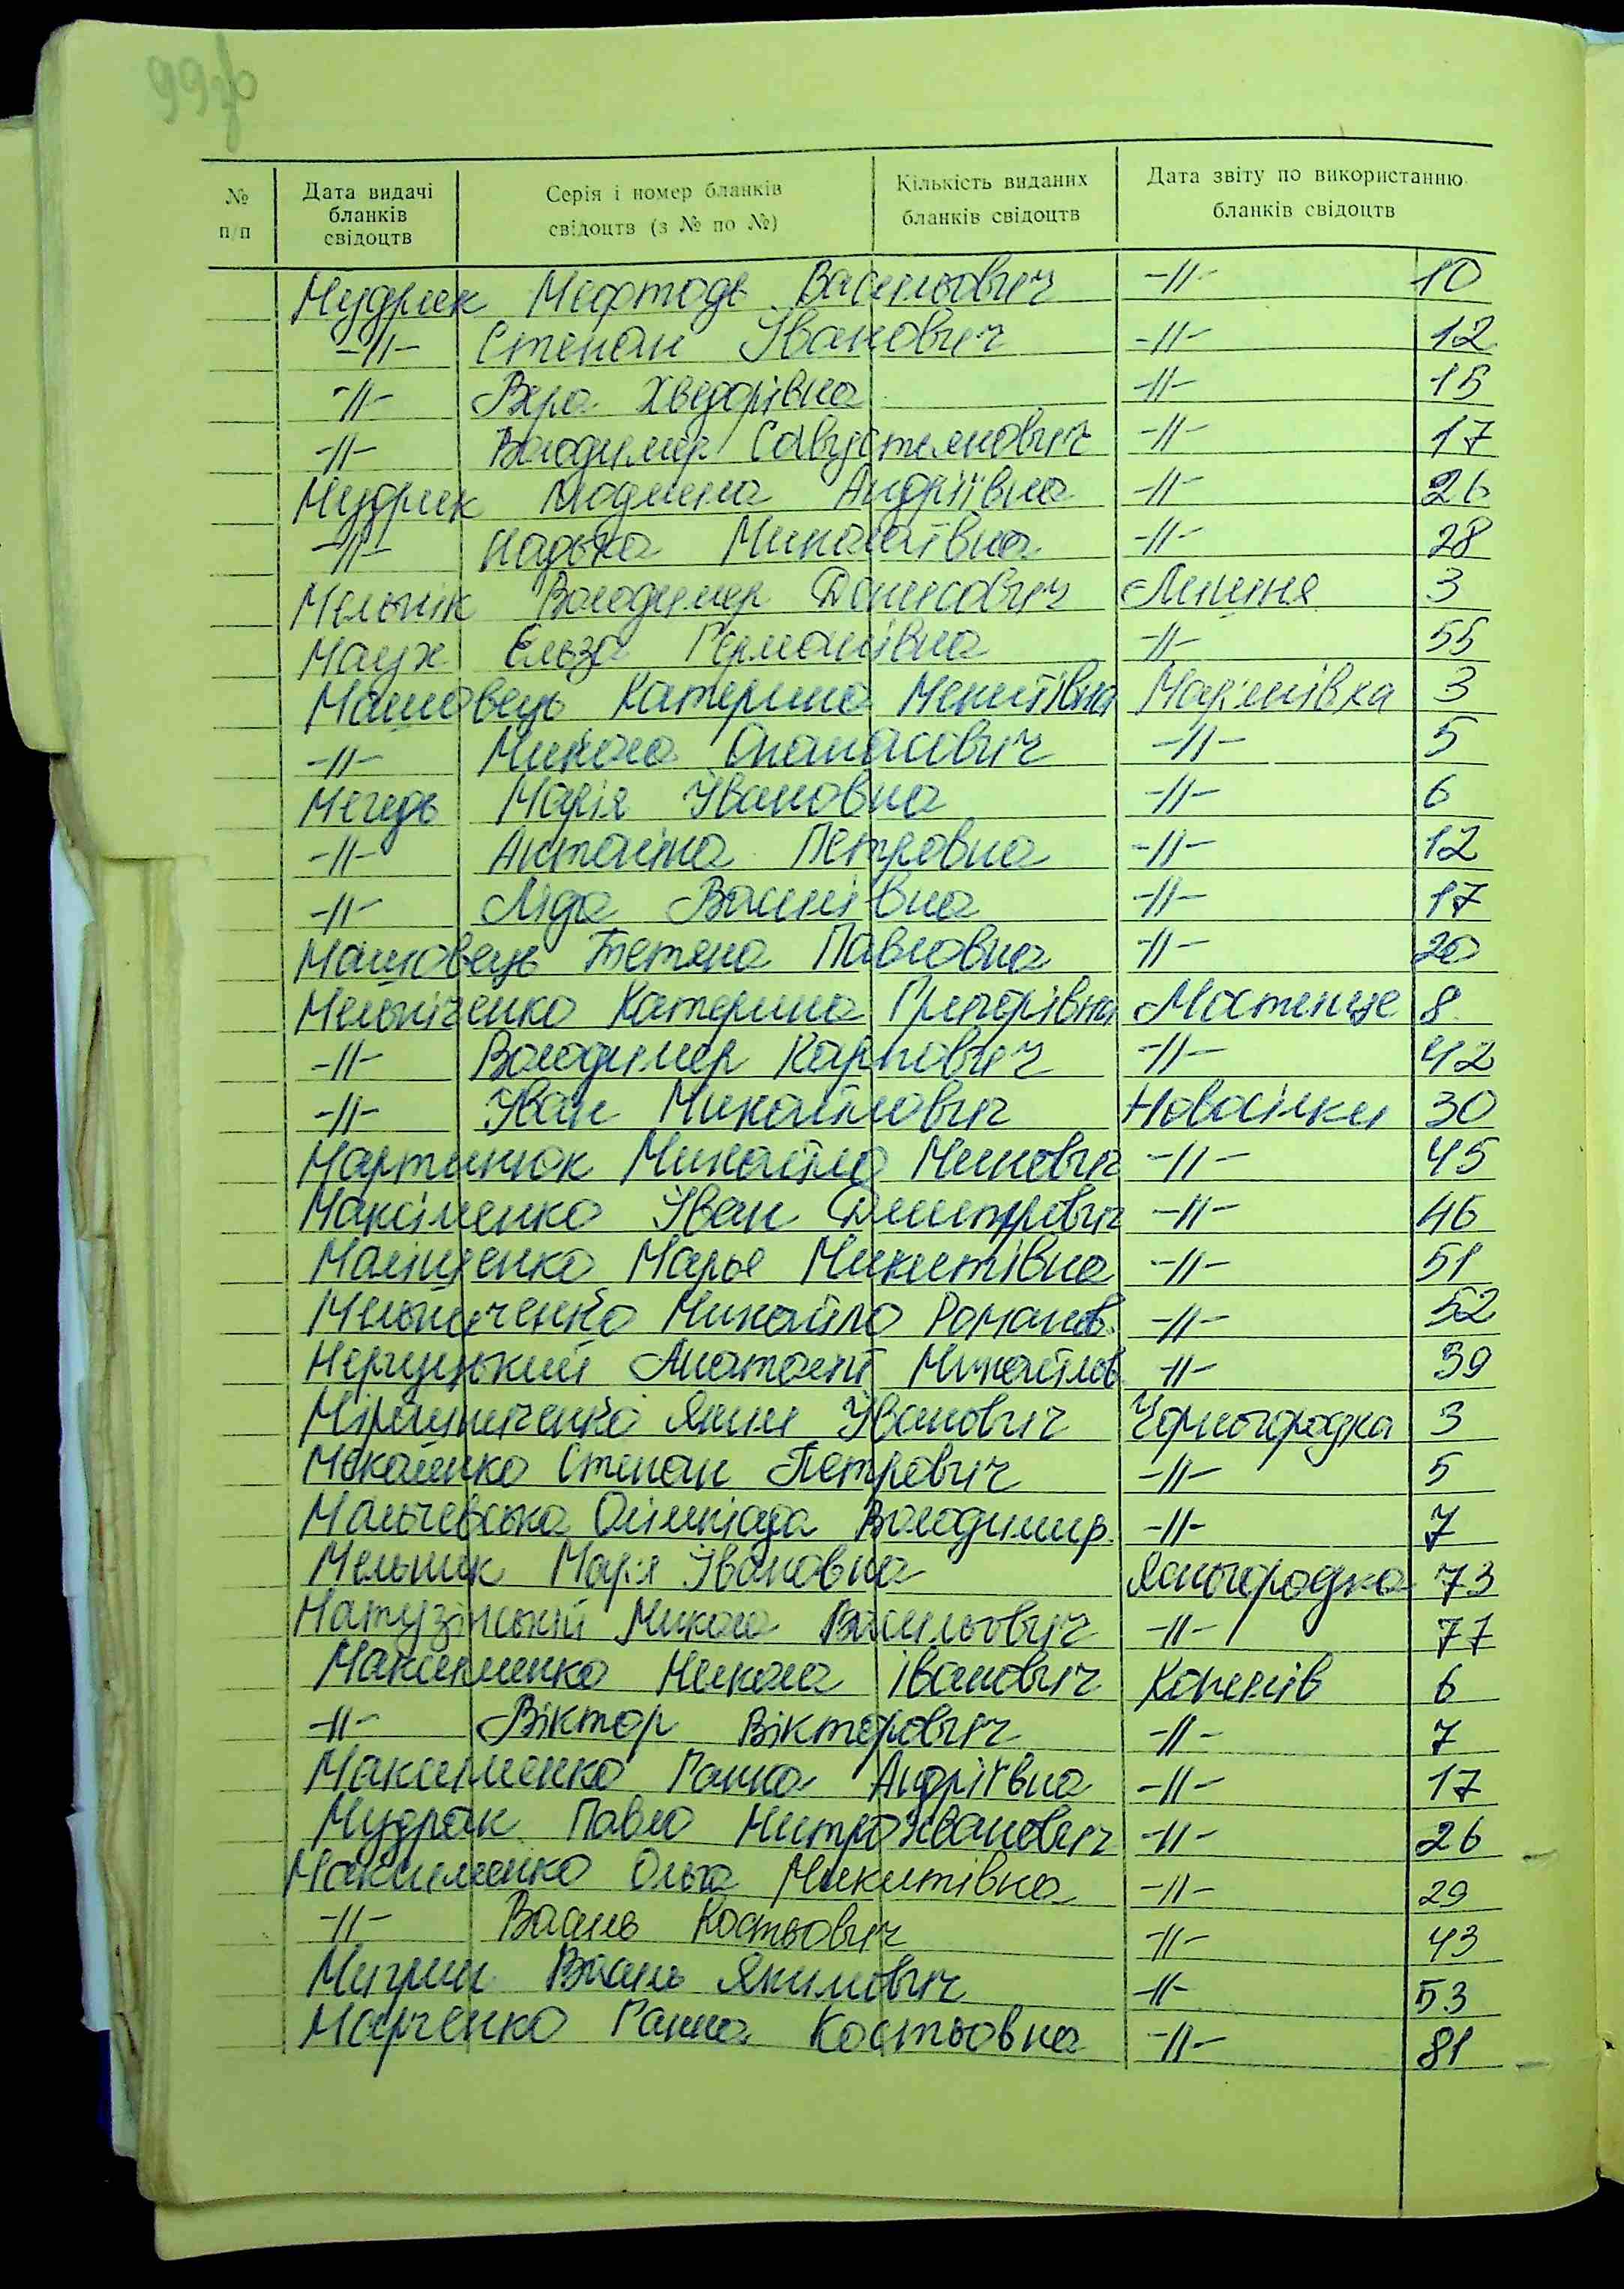 99зв
№ п/п | Дата видачі бланків свідоцтв | Серія і номер бланків свідоцтв (з № по №) | Кількість виданих бланків свідоцтв | Дата звіту по використанню бланків свідоцтв
Мудрик Мефтодь Васильович -//- 10
-//- Степан Іванович -//- 12
-//- Вера Хведорівна -//- 15
-//- Володимер Савустянович -//- 17
Мудрик Людмила Андріївна -//- 26
-//- Надька Михайлівна -//- 28
Мельнік Володимер Денисович Липиня 3
Маух Ельза Германівна -//- 55
Машовець Катерина Мекитівна Мар'янівка 3
-//- Микола Опанасович -//- 5
Мегедь Марія Івановна -//- 6
-//- Антаніна Петровна -//- 12
-//- Ліда Василівна -//- 17
Машовець Тетяна Павловна -//- 20
Мельніченко Катерина Григорівна Мостище 8
-//- Володимер Карпович -//- 42
-//- Іван Михайлович Новосілки 30
Мартинюк Михайло Минович -//- 45
Максіменко Іван Дмитрович -//- 46
Маліщенко Марья Микитівна -//- 51
Мельниченко Михайло Романов. -//- 52
Мергуцький Анатолій Михайлов -//- 39
Мірошниченко Яким Іванович Чорногородка 3
Мокаленко Степан Петрович -//- 5
Мальчевська Олімпіада Володимир. -//- 7
Мельник Марія Івановна Ясногородка 73
Матузінський Микола Васильович -//- 77
Максименко Микола Іванович Копилів 6
-//- Віктор Вікторович -//- 7
Максименко Ганна Андріївна -//- 17
Мудрак Павло Митрохванович -//- 26
Максименко Ольга Микитівна -//- 29
-//- Василь Костьович -//- 43
Мигрин Василь Якимович -//- 53
Марченко Ганна Костьовна -//- 81